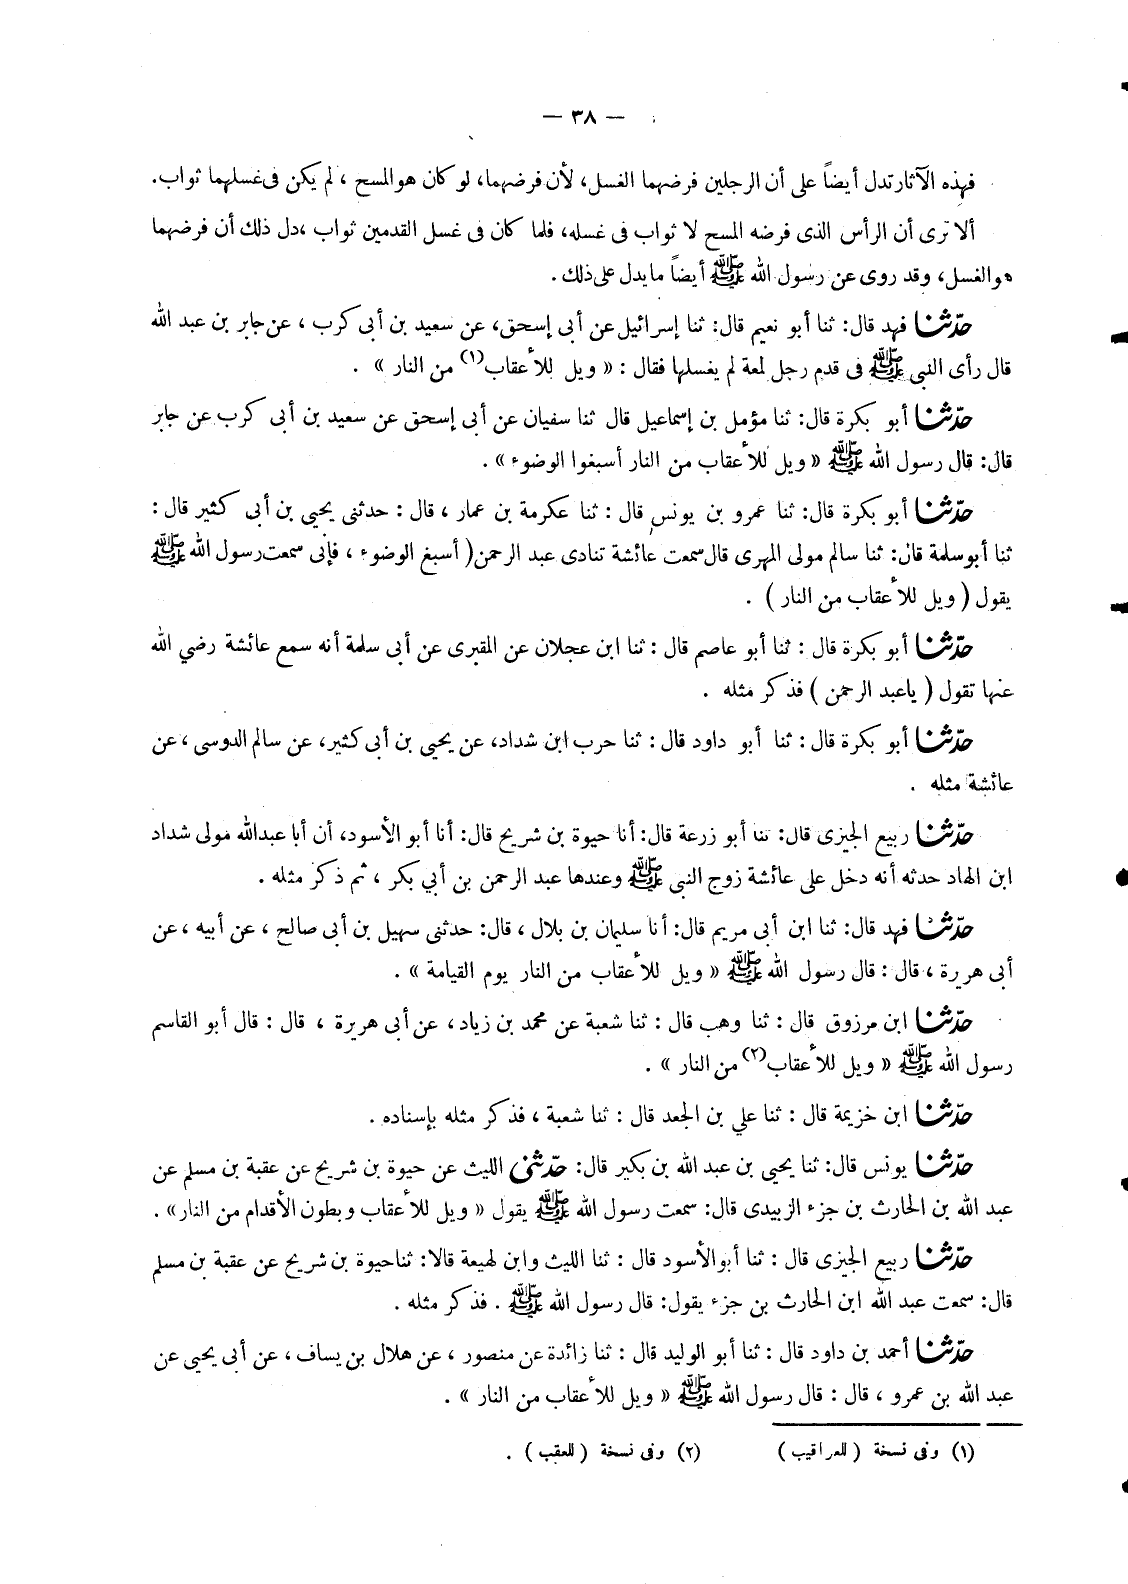 — ٣٨ —
فهذه الآثار تدل أيضاً على أن الرجلين فرضهما الغسل، لأن فرضهما، لو كان هو المسح ، لم يكن فى غسلهما ثواب.
ألا ترى أن الرأس الذى فرضه المسح لا ثواب فى غسله، فلما كان فى غسل القدمين ثواب ،دل ذلك أن فرضهما
هو الغسل، وقد روى عن رسول الله ﷺ أيضاً ما يدل على ذلك.
حدّثنا فهد قال: ثنا أبو نعيم قال: ثنا إسرائيل عن أبى إسحق، عن سعيد بن أبى كرب ، عن جابر بن عبد الله
قال رأى النبى ﷺ فى قدم رجل لمعة لم يغسلها فقال : « ويل للأعقاب(١) من النار » .
حدّثنا أبو بكرة قال: ثنا مؤمل بن إسماعيل قال ثنا سفيان عن أبى إسحق عن سعيد بن أبى كرب عن جابر
قال: قال رسول الله ﷺ « ويل للأعقاب من النار أسبغوا الوضوء ».
حدّثنا أبو بكرة قال: ثنا عمرو بن يونس قال : ثنا عكرمة بن عمار ، قال : حدثنى يحيى بن أبى كثير قال :
ثنا أبو سلمة قال: ثنا سالم مولى المهرى قال سمعت عائشة تنادى عبد الرحمن( أسبغ الوضوء ، فإنى سمعت رسول الله ﷺ
يقول ( ويل للأعقاب من النار ) .
حدّثنا أبو بكرة قال : ثنا أبو عاصم قال : ثنا ابن عجلان عن المقبرى عن أبى سلمة أنه سمع عائشة رضي الله
عنها تقول ( ياعبد الرحمن ) فذكر مثله .
حدّثنا أبو بكرة قال : ثنا أبو داود قال : ثنا حرب ابن شداد، عن يحيى بن أبى كثير، عن سالم الدوسى ، عن
عائشة مثله .
حدّثنا ربيع الجيزى قال: ثنا أبو زرعة قال: أنا حيوة بن شريح قال: أنا أبو الأسود، أن أبا عبدالله مولى شداد
ابن الهاد حدثه أنه دخل على عائشة زوج النبى ﷺ وعندها عبد الرحمن بن أبي بكر ، ثم ذكر مثله .
حدّثنا فهد قال: ثنا ابن أبى مريم قال: أنا سليمان بن بلال ، قال: حدثنى سهيل بن أبى صالح ، عن أبيه ، عن
أبى هريرة ، قال : قال رسول الله ﷺ « ويل للأعقاب من النار يوم القيامة » .
حدّثنا ابن مرزوق قال : ثنا وهب قال : ثنا شعبة عن محمد بن زياد، عن أبى هريرة ، قال : قال أبو القاسم
رسول الله ﷺ « ويل للأعقاب(٢) من النار » .
حدّثنا ابن خزيمة قال : ثنا علي بن الجعد قال : ثنا شعبة ، فذكر مثله بإسناده .
حدّثنا يونس قال: ثنا يحيى بن عبد الله بن بكير قال: حدّثنى الليث عن حيوة بن شريح عن عقبة بن مسلم عن
عبد الله بن الحارث بن جزء الزبيدى قال: سمعت رسول الله ﷺ يقول « ويل للأعقاب وبطون الأقدام من النار» .
حدّثنا ربيع الجيزى قال : ثنا أبو الأسود قال : ثنا الليث وابن لهيعة قالا: ثنا حيوة بن شريح عن عقبة بن مسلم
قال: سمعت عبد الله ابن الحارث بن جزء يقول: قال رسول الله ﷺ . فذكر مثله .
حدّثنا أحمد بن داود قال : ثنا أبو الوليد قال : ثنا زائدة عن منصور ، عن هلال بن يساف ، عن أبى يحيى عن
عبد الله بن عمرو ، قال : قال رسول الله ﷺ « ويل للأعقاب من النار » .
(١) وفى نسخة ( للعراقيب ) (٢) وفى نسخة ( للعقب ) .